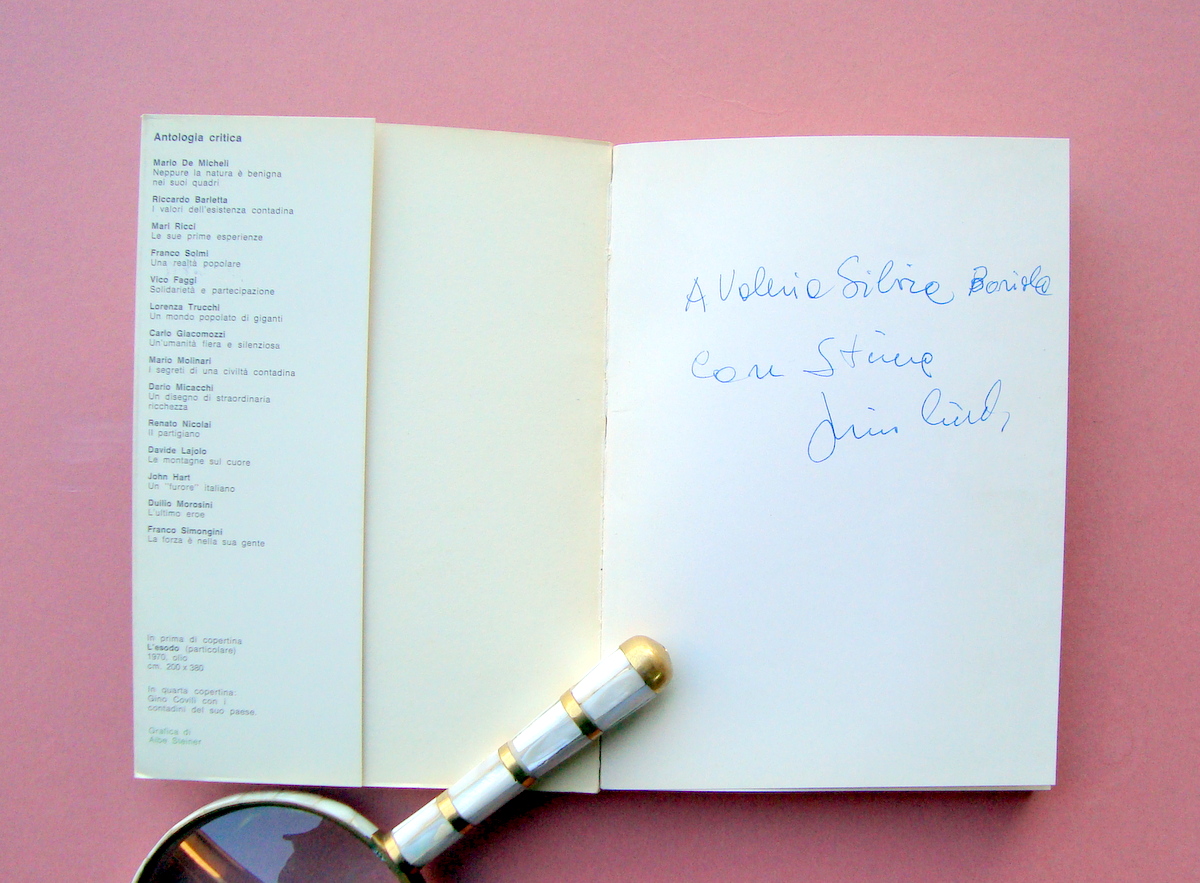 Antologia critica
Mario De Micheli
Neppure la natura è benigna
nei suoi quadri
Riccardo Barletta
I valori dell'esistenza contadina
Mari Ricci
Le sue prime esperienze
Franco Solmi
Una realtà popolare
Vico Faggi
Solidarietà e partecipazione
Lorenza Trucchi
Un mondo popolato di giganti
Carlo Giacomozzi
Un'umanità fiera e silenziosa
Mario Molinari
I segreti di una civiltà contadina
Dario Micacchi
Un disegno di straordinaria
ricchezza
Renato Nicolai
Il partigiano
Davide Lajolo
Le montagne sul cuore
John Hart
Un "furore" italiano
Duilio Morosini
L'ultimo eroe
Franco Simongini
La forza è nella sua gente
In prima di copertina
L'esodo (particolare)
1970, olio
cm. 200 x 380
In quarta copertina:
Gino Covili con i
contadini del suo paese.
Grafica di
Albe Steiner
A Valeria Silvia
con stima